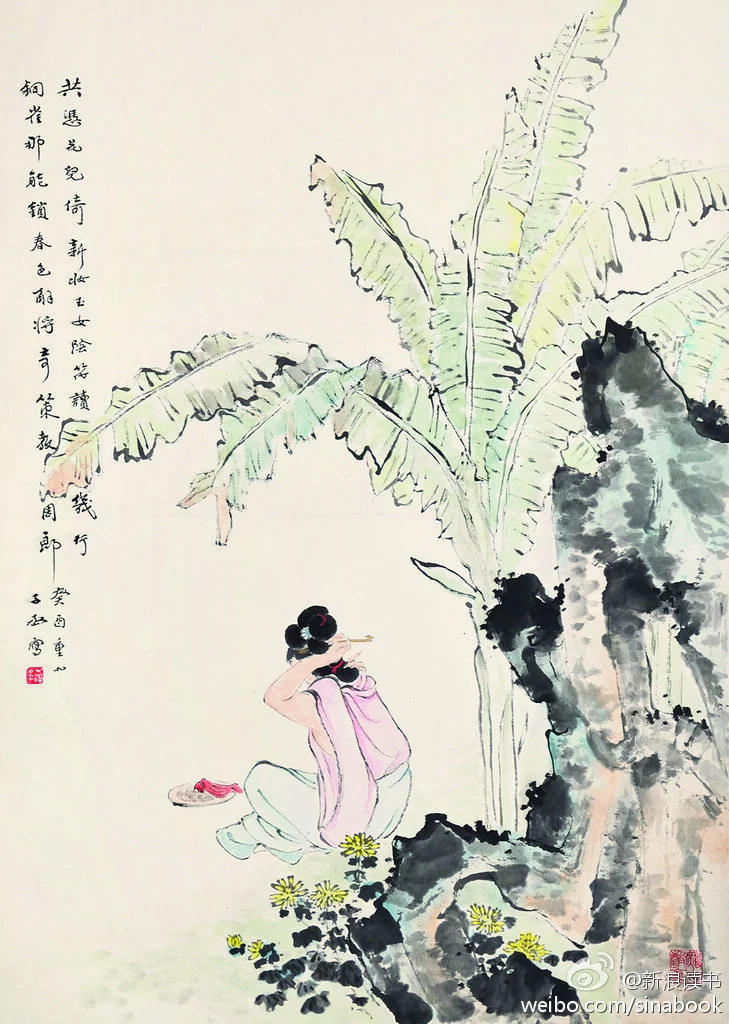 共憑花兒倚新妝玉女陰符讀幾行
銅雀那能鎖春色解將奇策教周郎
癸酉重九
子 寫
@新浪读书
weibo.com/sinabook